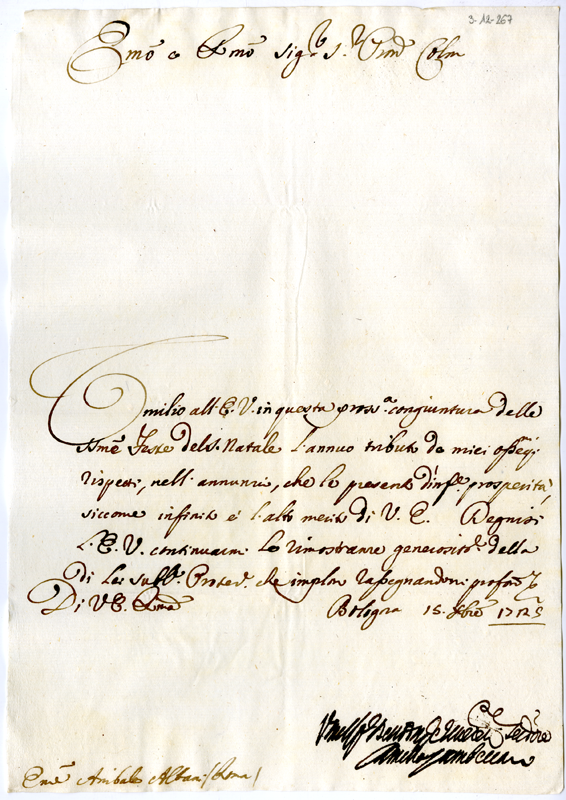 3-12-267
Emõ e Rmõ Sig.r S.r Pron Colmo
Umilio all'E. V. in questa pross.a congiuntura delle
SSme Feste del S. Natale l'annuo tributo de miei osseqi
rispetti, nell'annunzi, che le presento d'inf.e prosperità,
siccome infinito è l'alto merito di V. E. Degnisi
L'E. V. continuarmi le rimostranze generose della
di Lei Protez. che imploro rasegnandomi
Di V E. Rma Bologna 15. Xbre 1725
Servitore
Emo Anibale Albani (Roma)